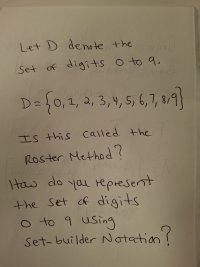 Let D denote the
set of digits 0 to 9.
D = {0, 1, 2, 3, 4, 5, 6, 7, 8, 9}
Is this called the
Roster Method?
How do you represent
the set of digits
0 to 9 using
set-builder Notation?